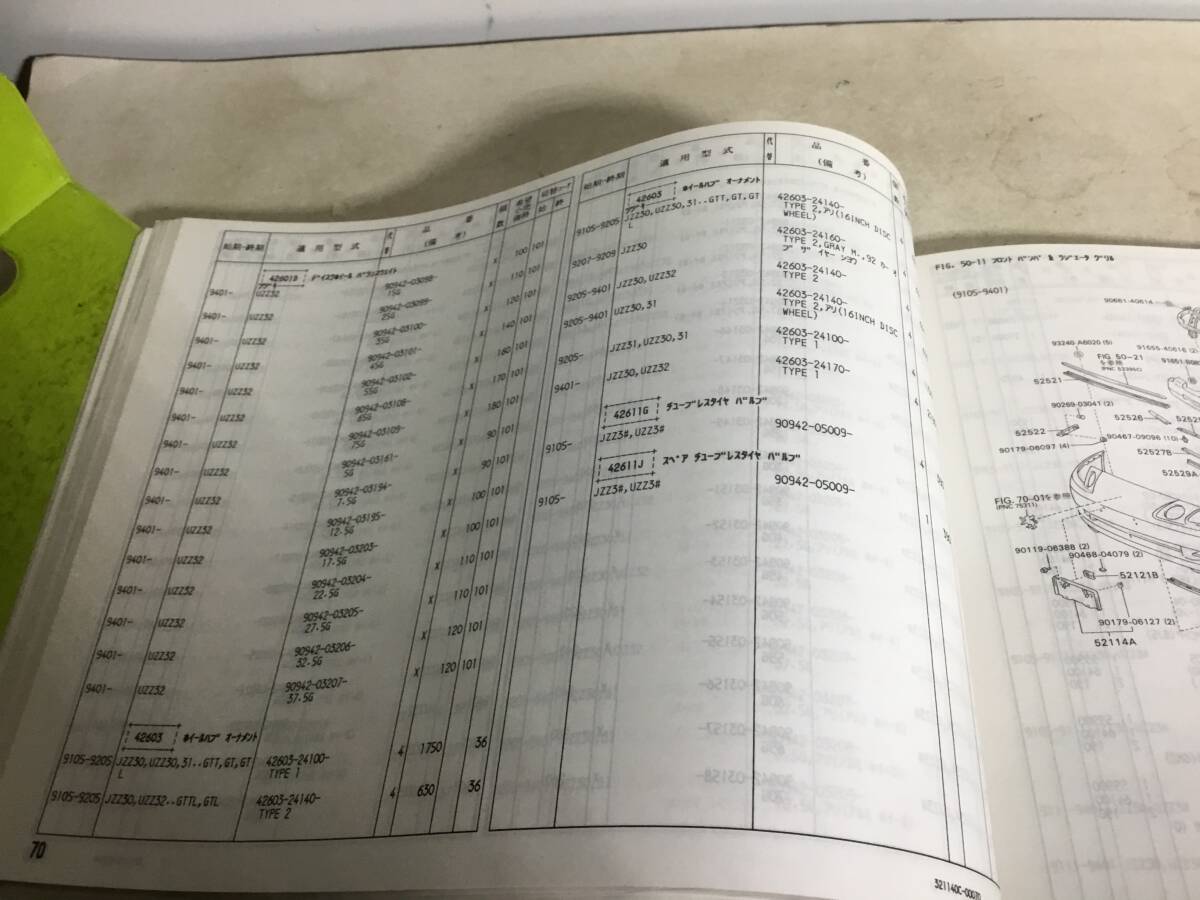 始期-終期 適用型式 代替 品番 (備考) 個数 希望小売価格 切替コード 始 終
42601B ディスクホイール バランスウエイト
フツキ
9401- UZZ32 90942-03098- X 100 101
15G
9401- UZZ32 90942-03099- X 110 101
25G
9401- UZZ32 90942-03100- X 120 101
35G
9401- UZZ32 90942-03101- X 140 101
45G
9401- UZZ32 90942-03102- X 160 101
55G
9401- UZZ32 90942-03108- X 170 101
65G
9401- UZZ32 90942-03109- X 180 101
75G
9401- UZZ32 90942-03161- X 90 101
5G
9401- UZZ32 90942-03194- X 90 101
7.5G
9401- UZZ32 90942-03195- X 100 101
12.5G
9401- UZZ32 90942-03203- X 100 101
17.5G
9401- UZZ32 90942-03204- X 110 101
22.5G
9401- UZZ32 90942-03205- X 110 101
27.5G
9401- UZZ32 90942-03206- X 120 101
32.5G
9401- UZZ32 90942-03207- X 120 101
37.5G
42603 ホイールハブ オーナメント
9105-9205 JZZ30,UZZ30,31..GTT,GT,GT 42603-24100- 4 1750 36
L TYPE 1
9105-9205 JZZ30,UZZ32..GTTL,GTL 42603-24140- 4 630 36
TYPE 2
70
始期-終期 適用型式 代替 品番
(備考)
42603 ホイールハブ オーナメント
9105-9205 JZZ30,UZZ30,31..GTT,GT,GT 42603-24140-
L TYPE 2,アリ(16INCH DISC
WHEEL)
9207-9209 JZZ30 42603-24160-
TYPE 2,GRAY M.,92
9205-9401 JZZ30,UZZ32 42603-24140-
TYPE 2
9205-9401 UZZ30,31 42603-24140-
TYPE 2,アリ(16INCH DISC
WHEEL)
9205- JZZ31,UZZ30,31 42603-24100-
TYPE 1
9401- JZZ30,UZZ32 42603-24170-
TYPE 1
42611G チューブレスタイヤ バルブ
9105- JZZ3#,UZZ3# 90942-05009-
42611J スペア チューブレスタイヤ バルブ
9105- JZZ3#,UZZ3# 90942-05009-
FIG. 50-11 フロント バンパ & ラジエータ グリル
(9105-9401)
90661-40614
93240-A6020 (5)
91655-40616 (2)
FIG. 50-21
を参照
52521
90269-03041 (2)
52526
52522
90467-09096 (10)
90179-06097 (4)
52527B
52529A
FIG. 70-01を参照
(PNC 75311)
90119-06388 (2)
90468-04079 (2)
52121B
90179-06127 (2)
52114A